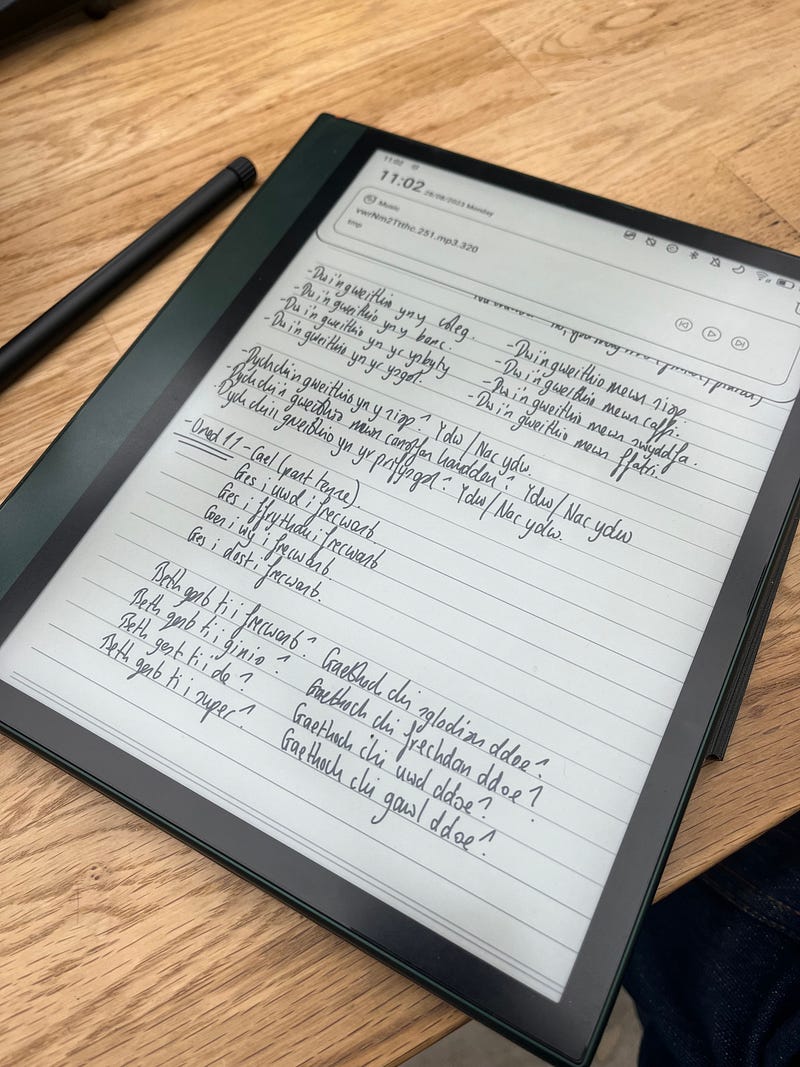 11:02
11:02 28/08/2023 Monday
Music
vwrNm2Ttthc.251.mp3.320
tmp
- Dw i'n gweithio yn y coleg.
- Dw i'n gweithio yn y banc.
- Dw i'n gweithio yn yr ysbyty
- Dw i'n gweithio yn yr ysgol.
- Dw i n gweithio mewn siop.
- Dw i n gweithio mewn caffi.
- Dw i n gweithio mewn swyddfa.
- Dw i n gweithio mewn ffatri.
- Dych chi'n gweithio yn y siop? Ydw/Nac ydw
Dych chi'n gweithio mewn canolfan hamdden? Ydw/Nac ydw
Dych chi'n gweithio yn yr prifysgol? Ydw/Nac ydw.
- Uned 11 - Cael (past tense).
Ges i uwd i frecwast
Ges i ffrwythau i frecwast
Ges i wy i frecwast.
Ges i dost i frecwast.
Beth gest ti i frecwast?
Beth gest ti i ginio?
Beth gest ti i de?
Beth gest ti i swper?
Gaethoch chi sglodion ddoe?
Gaethoch chi frechdan ddoe?
Gaethoch chi uwd ddoe?
Gaethoch chi gawl ddoe?